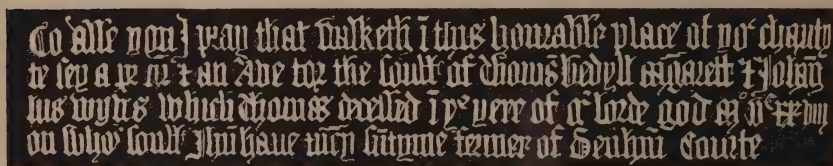 To alle you I pray that walketh ī this honorable place of yoʳ charyty
to sey a pr nr & an Ave for the soulˢ of Thomˢ bedyll m̄garett & Johan̄
his wyfes which Thomas decessed ī yᵉ yere of oʳ lorde god mˡ vᶜ
on whoˢ soulˢ Jhū have mcy sūtyme fermer of Denhm̄ Courte